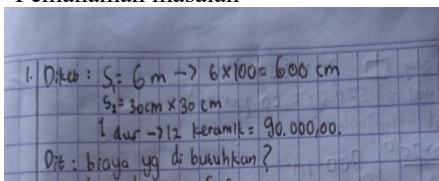 Pemahaman masalah
1. Dikeb : S₁ = 6 m -> 6x100 = 600 cm
S₂ = 30cm x 30 cm
1 dur -> 12 keramik = 90.000,00.
Dit : biaya yg di butuhkan?